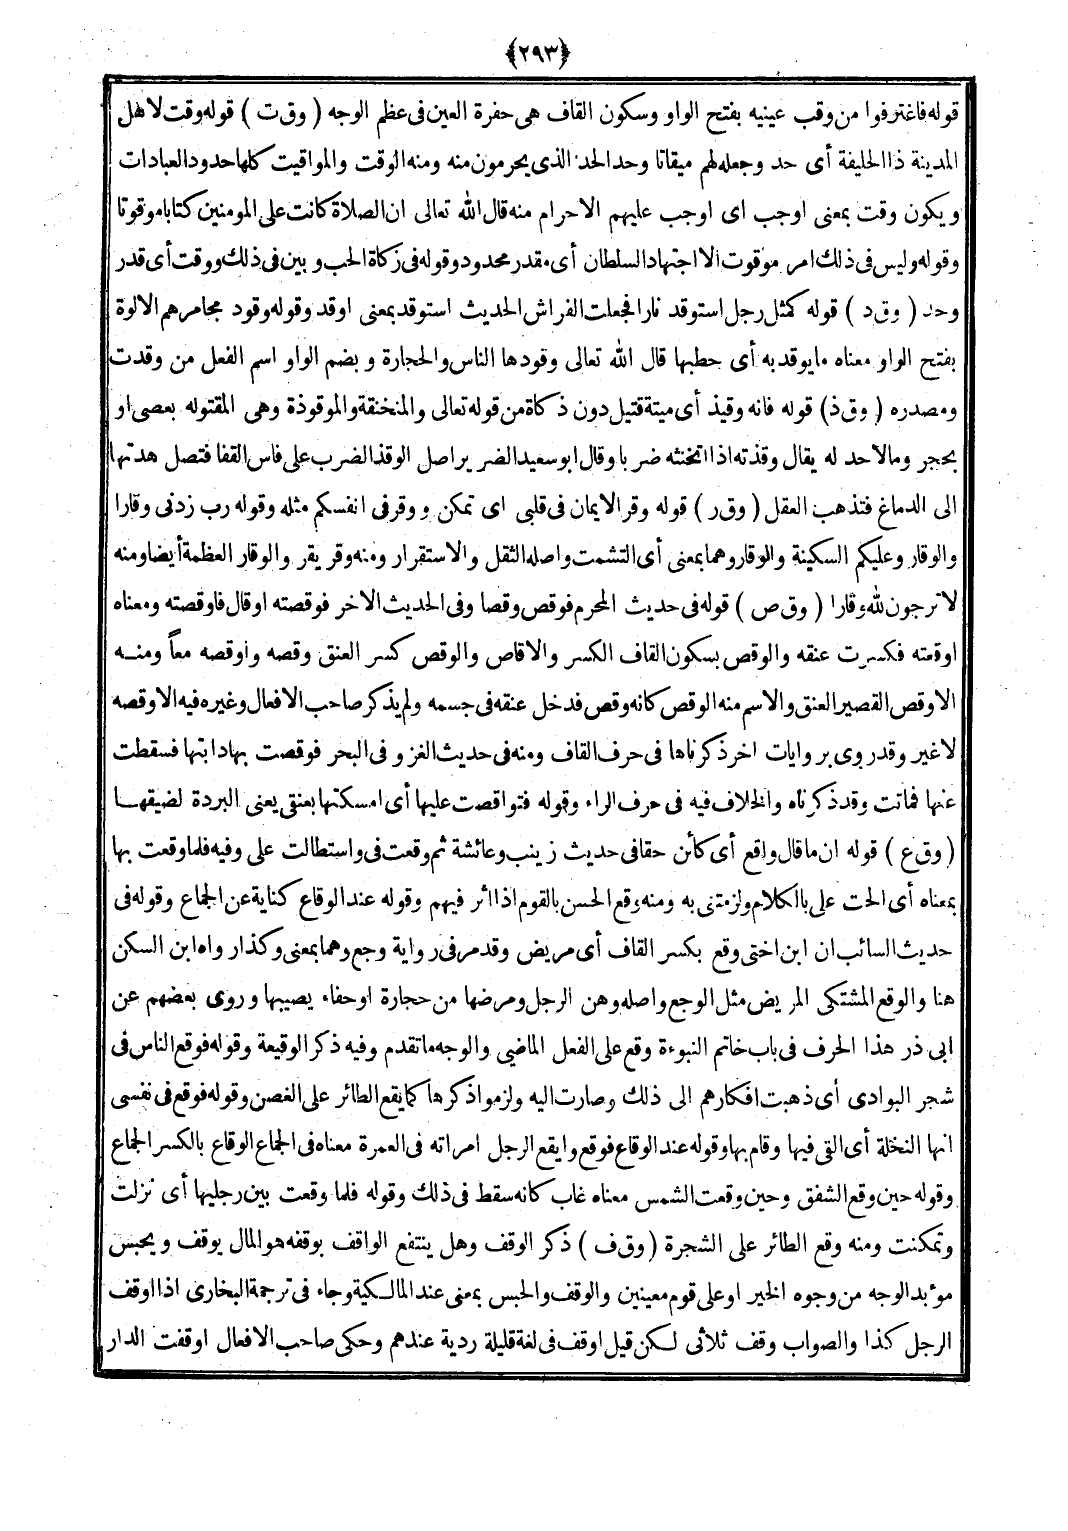 ﴿٢٩٣﴾
قوله فاغترفوا من وقب عينيه بفتح الواو وسكون القاف هى حفرة العين فى عظم الوجه ( وق ت ) قوله وقت لاهل
المدينة ذا الحليفة أى حد وجعله لهم ميقاتا وحد الحد الذى يحرمون منه ومنه الوقت والمواقيت كلها حدود العبادات
ويكون وقت بمعنى اوجب اى اوجب عليهم الاحرام منه قال الله تعالى ان الصلاة كانت على المومنين كتابا موقوتا
وقوله وليس فى ذلك امر موقوت الا اجتهاد السلطان أى مقدر محدود وقوله فى زكاة الحب وبين فى ذلك ووقت أى قدر
وحد ( وق د ) قوله كمثل رجل استوقد نارا فجعلت الفراش الحديث استوقد بمعنى اوقد وقوله وقود مجامرهم الالوة
بفتح الواو معناه مايوقد به أى حطبها قال الله تعالى وقودها الناس والحجارة وبضم الواو اسم الفعل من وقدت
ومصدره ( وق ذ ) قوله فانه وقيذ أى ميتة قتيل دون ذكاة من قوله تعالى والمنخنقة والموقوذة وهى المقتوله بعصى او
بحجر ومالاحد له يقال وقذته اذا اثخنته ضربا وقال ابو سعيد الضرير اصل الوقذ الضرب على فاس القفا فتصل هدتها
الى الدماغ فتذهب العقل ( وق ر ) قوله وقر الايمان فى قلبى اى تمكن ووقر فى انفسكم مثله وقوله رب زدنى وقارا
والوقار وعليكم السكينة والوقار وهما بمعنى أى التشمت واصله الثقل والاستقرار ومنه وقر يقر والوقار العظمة أيضا ومنه
لا ترجون لله وقارا ( وق ص ) قوله فى حديث المحرم فوقص وقصا وفى الحديث الاخر فوقصته او قال فاوقصته ومعناه
اوقعته فكسرت عنقه والوقص بسكون القاف الكسر والاقاص والوقص كسر العنق وقصه واوقصه معاً ومنه
الاوقص القصير العنق والاسم منه الوقص كانه وقص فدخل عنقه فى جسمه ولم يذكر صاحب الافعال وغيره فيه الاوقصه
لا غير وقد روى بروايات اخر ذكرناها فى حرف القاف ومنه فى حديث الغزو فى البحر فوقصت بها دابتها فسقطت
عنها فماتت وقد ذكرناه والخلاف فيه فى حرف الراء وقوله فتواقصت عليها أى امسكتها بعنقى يعنى البردة لضيقها
( وق ع ) قوله ان ما قال واقع أى كائن حقا فى حديث زينب وعائشة ثم وقعت فى واستطالت على وفيه فلما وقعت بها
بمعناه أى الحت على بالكلام ولزمتنى به ومنه وقع الحسن بالقوم اذا اثر فيهم وقوله عند الوقاع كناية عن الجماع وقوله فى
حديث السائب ان ابن اختى وقع بكسر القاف أى مريض وقد مر فى رواية وجع وهما بمعنى وكذا رواه ابن السكن
هنا والوقع المشتكى المريض مثل الوجع واصله وهن الرجل ومرضها من حجارة اوحفاء يصيبها وروى بعضهم عن
ابى ذر هذا الحرف فى باب خاتم النبوءة وقع على الفعل الماضى والوجه ما تقدم وفيه ذكر الوقيعة وقوله فوقع الناس فى
شجر البوادى أى ذهبت افكارهم الى ذلك وصارت اليه ولزموا ذكرها كما يقع الطائر على الغصن وقوله فوقع فى نفسى
انها النخلة أى التى فيها وقام بها وقوله عند الوقاع فوقع وايقع الرجل امراته فى العمرة معناه فى الجماع الوقاع بالكسر الجماع
وقوله حين وقع الشفق وحين وقعت الشمس معناه غاب كانه سقط فى ذلك وقوله فلما وقعت بين رجليها أى نزلت
وتمكنت ومنه وقع الطائر على الشجرة ( وق ف ) ذكر الوقف وهل ينتفع الواقف بوقفه هو المال يوقف ويحبس
موبد الوجه من وجوه الخير او على قوم معينين والوقف والحبس بمعنى عند المالكية وجاء فى ترجمة البخارى اذا اوقف
الرجل كذا والصواب وقف ثلاثى لكن قيل اوقف فى لغة قليلة ردية عندهم وحكى صاحب الافعال اوقفت الدار